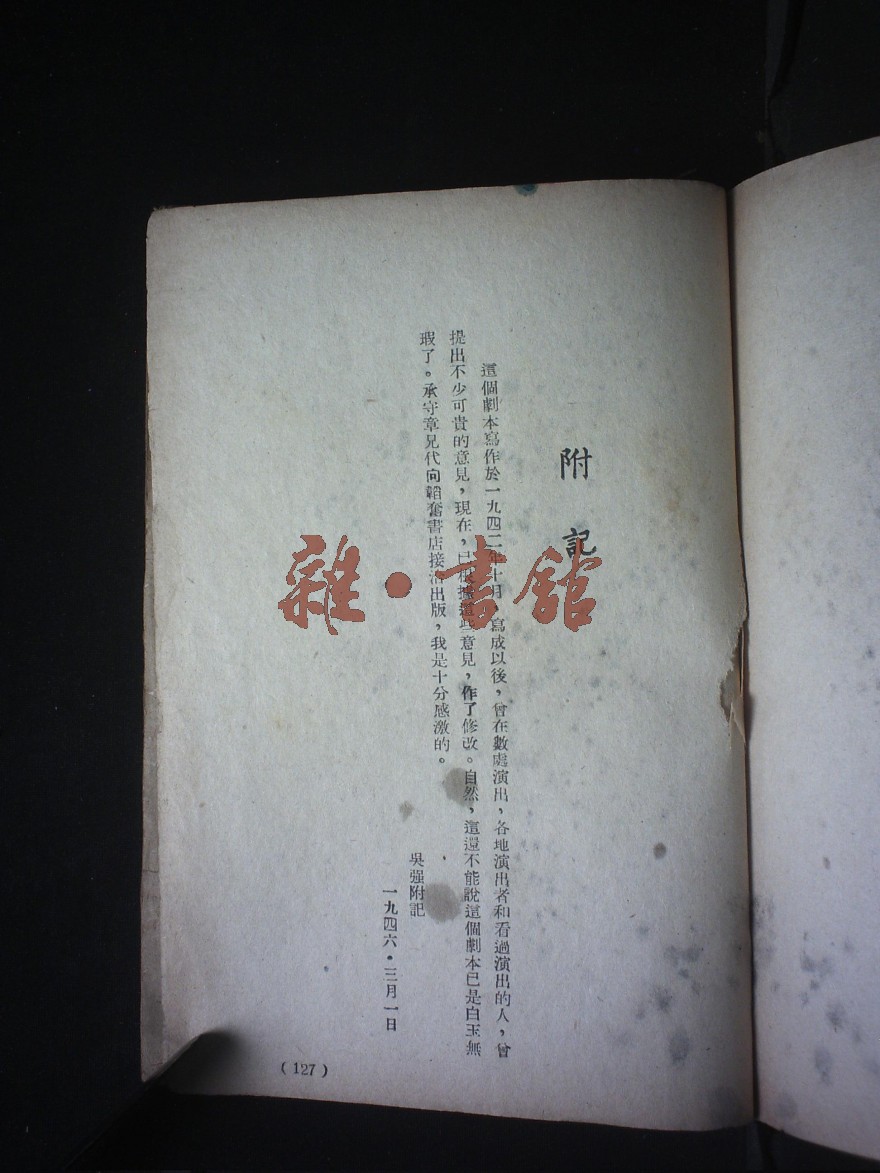 附記
這個劇本寫作於一九四二年十月，寫成以後，曾在數處演出，各地演出者和看過演出的人，曾
提出不少可貴的意見，現在，已根據這些意見，作了修改。自然，這還不能說這個劇本已是白玉無
瑕了。承守章兄代向韜奮書店接洽出版，我是十分感激的。
吳强附記
一九四六·三月一日
(127)
雜·書館